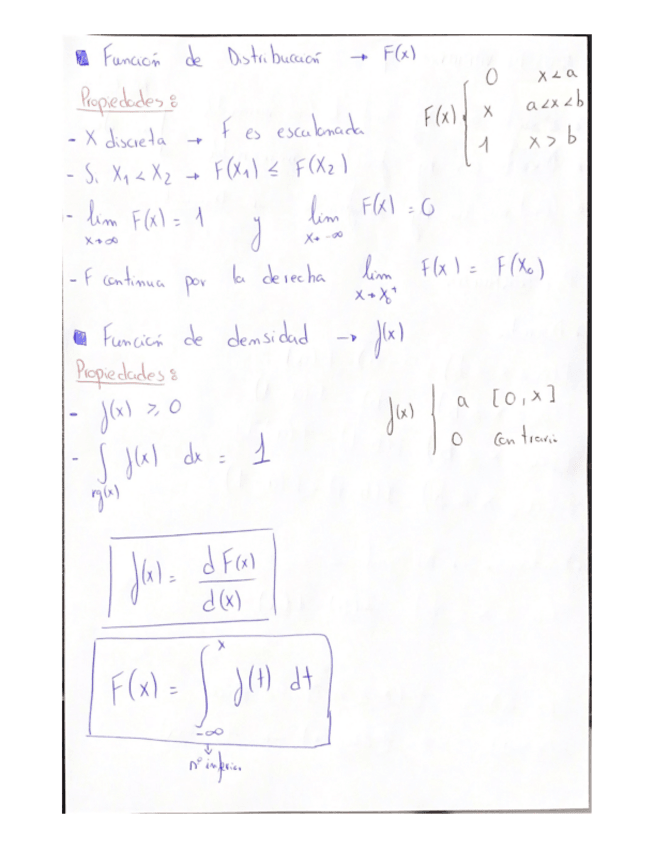 Función de Distribución → F(x)
Propiedades:
F(x) { 0 x < a
x a < x < b
1 x > b
- X discreta → F es escalonada
- Si X₁ < X₂ → F(X₁) ≤ F(X₂)
- lim x→∞ F(x) = 1 y lim x→-∞ F(x) = 0
- F continua por la derecha lim x→x₀⁺ F(x) = F(x₀)
Función de densidad → f(x)
Propiedades:
- f(x) ≥ 0
f(x) { a [0, x]
0 contrario
- ∫ rg(x) f(x) dx = 1
f(x) = dF(x) / d(x)
F(x) = ∫ -∞ x f(t) dt
↓
nº inferior